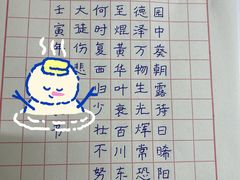 园中葵朝露待日晞阳
德泽万物生光辉常恐
至焜黄华叶衰百川东
何时复西归少壮不努
大徒伤悲
壬寅年